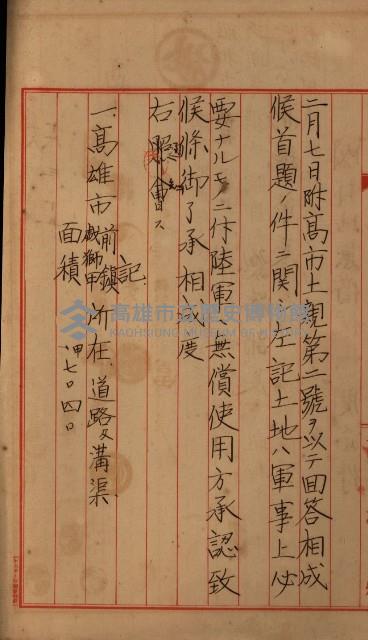 二月七日附高市土親第二號ヲ以テ回答相成
候首題ノ件ニ関シ左記土地ハ軍事上必
要ナルモノニ付陸軍ニ無償使用方承認致
候條御了承相成度
右照會ス
記
一、高雄市前鎮 戲獅甲 所在 道路及溝渠
面積 甲七〇四〇
高雄市立歷史博物館
KAOHSIUNG MUSEUM OF HISTORY